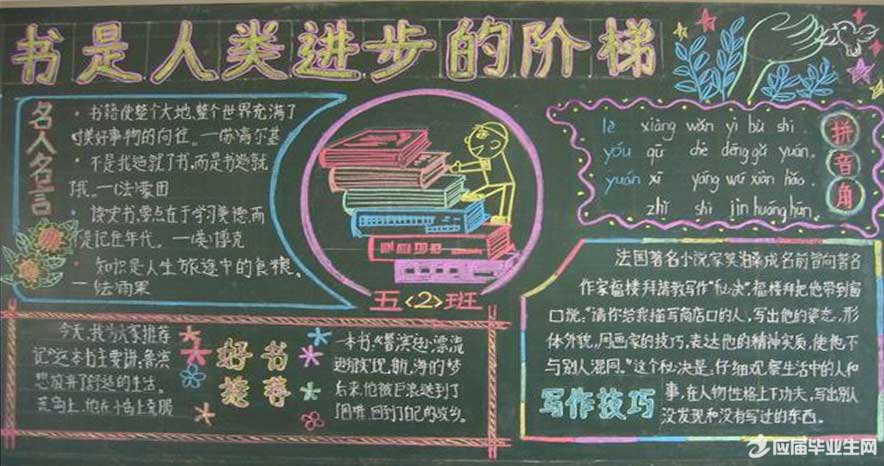 书是人类进步的阶梯
名人名言
·书籍使整个大地,整个世界充满了
对美好事物的向往。—(苏)高尔基
·不是我造就了书,而是书造就
了我。—(法)蒙田
·读史书,要点在于学习美德,而
不是记住年代。—(英)博克
·知识是人生旅途中的食粮。
—(法)雨果
五<2>班
lè xiàng wǎn yì bù shì
yóu qū chē dēng gǔ yuán.
yuán xī yáng wú xiàn hǎo.
zhǐ shì jìn huáng hūn
拼音角
好书推荐
今天,我为大家推荐
记》这本书主要讲:鲁滨
想放弃了舒适的生活。
荒岛上。他在小岛上克服
一本书:《鲁滨逊漂流
逊为实现航海的梦
后来,他被巨浪送到了
困难,回到了自己的故乡。
法国著名小说家莫泊桑成名前曾向著名
作家福楼拜请教写作“秘决”,福楼拜把他带到窗
口说:“请你给我描写商店口的人,写出他的姿态、形
体外貌,用画家的技巧,表达他的精神实质,使他不
与别人混同。”这个秘决是:仔细观察生活中的人和
事,在人物性格上下功夫,写出别人
没发现和没有写过的东西。
写作技巧
应届毕业生网